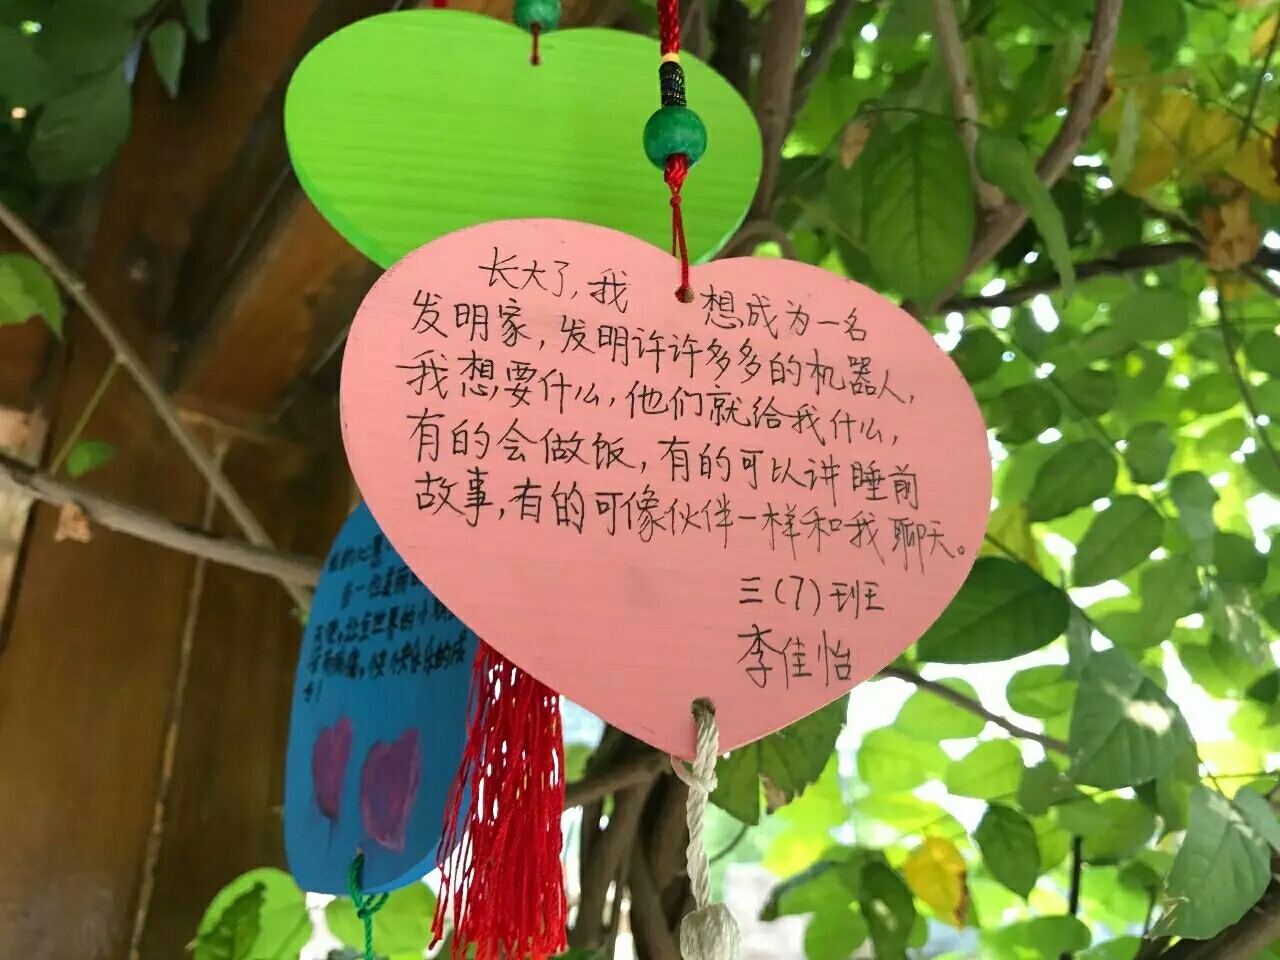 长大了,我想成为一名
发明家,发明许许多多的机器人,
我想要什么,他们就给我什么,
有的会做饭,有的可以讲睡前
故事,有的可像伙伴一样和我聊天。
三(7)班
李佳怡